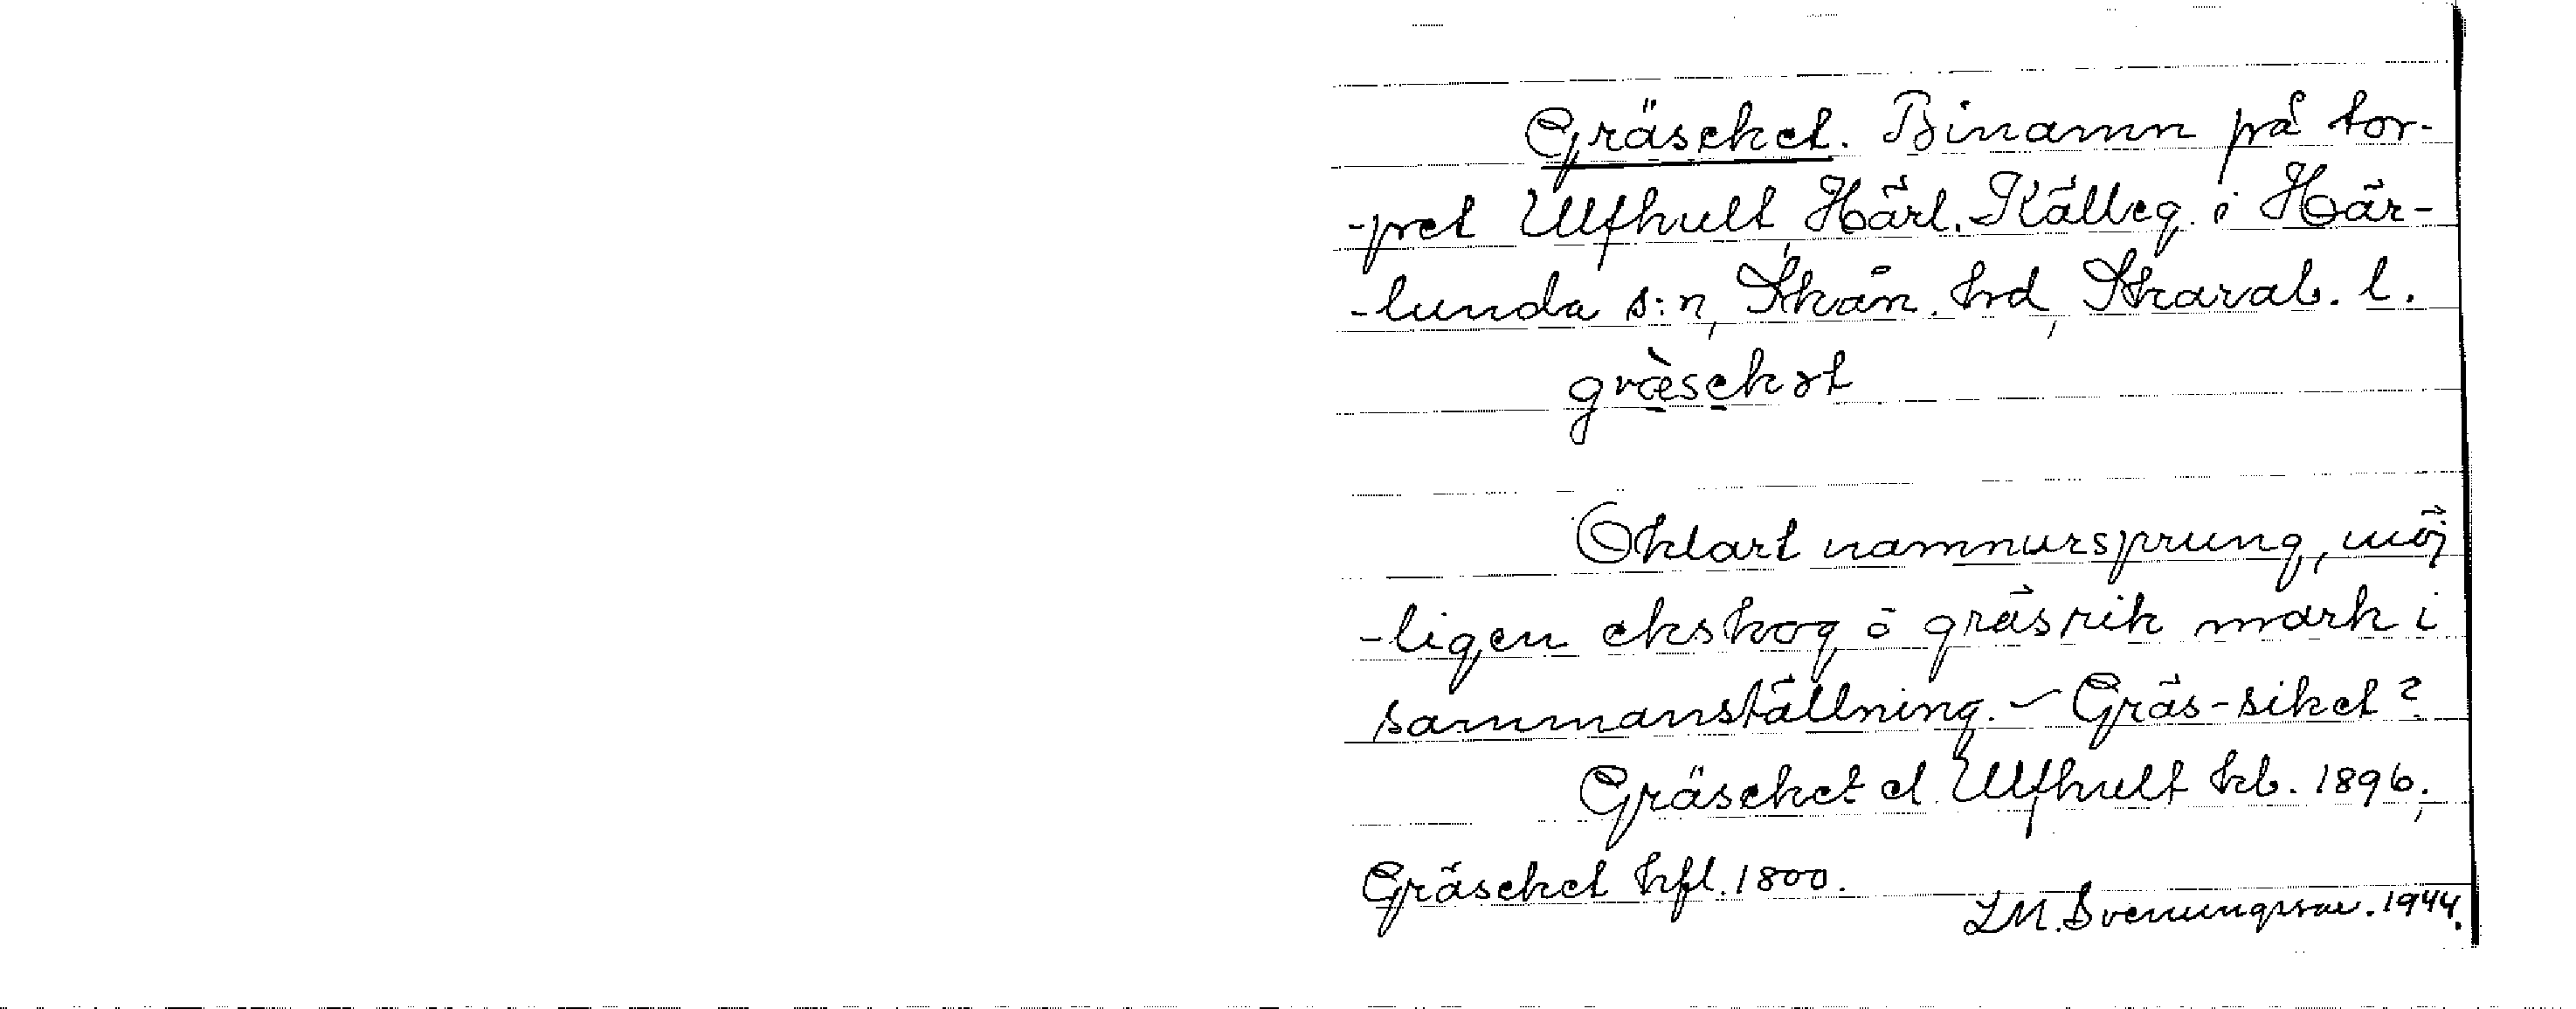 Gräseket. Binamn på tor-
-pet Ulfhult, Härl. Källeg. i Här-
-lunda s:n, Skån. hd, Skarab. l.
græ̀sekət
Oklart namnursprung, möj
-ligen ekskog å gräsrik mark i
sammanställning. - Gräs-siket?
Gräseket el Ulfhult kb. 1896,
Gräseket hfl. 1800.
LM. Svenungsson. 1944.